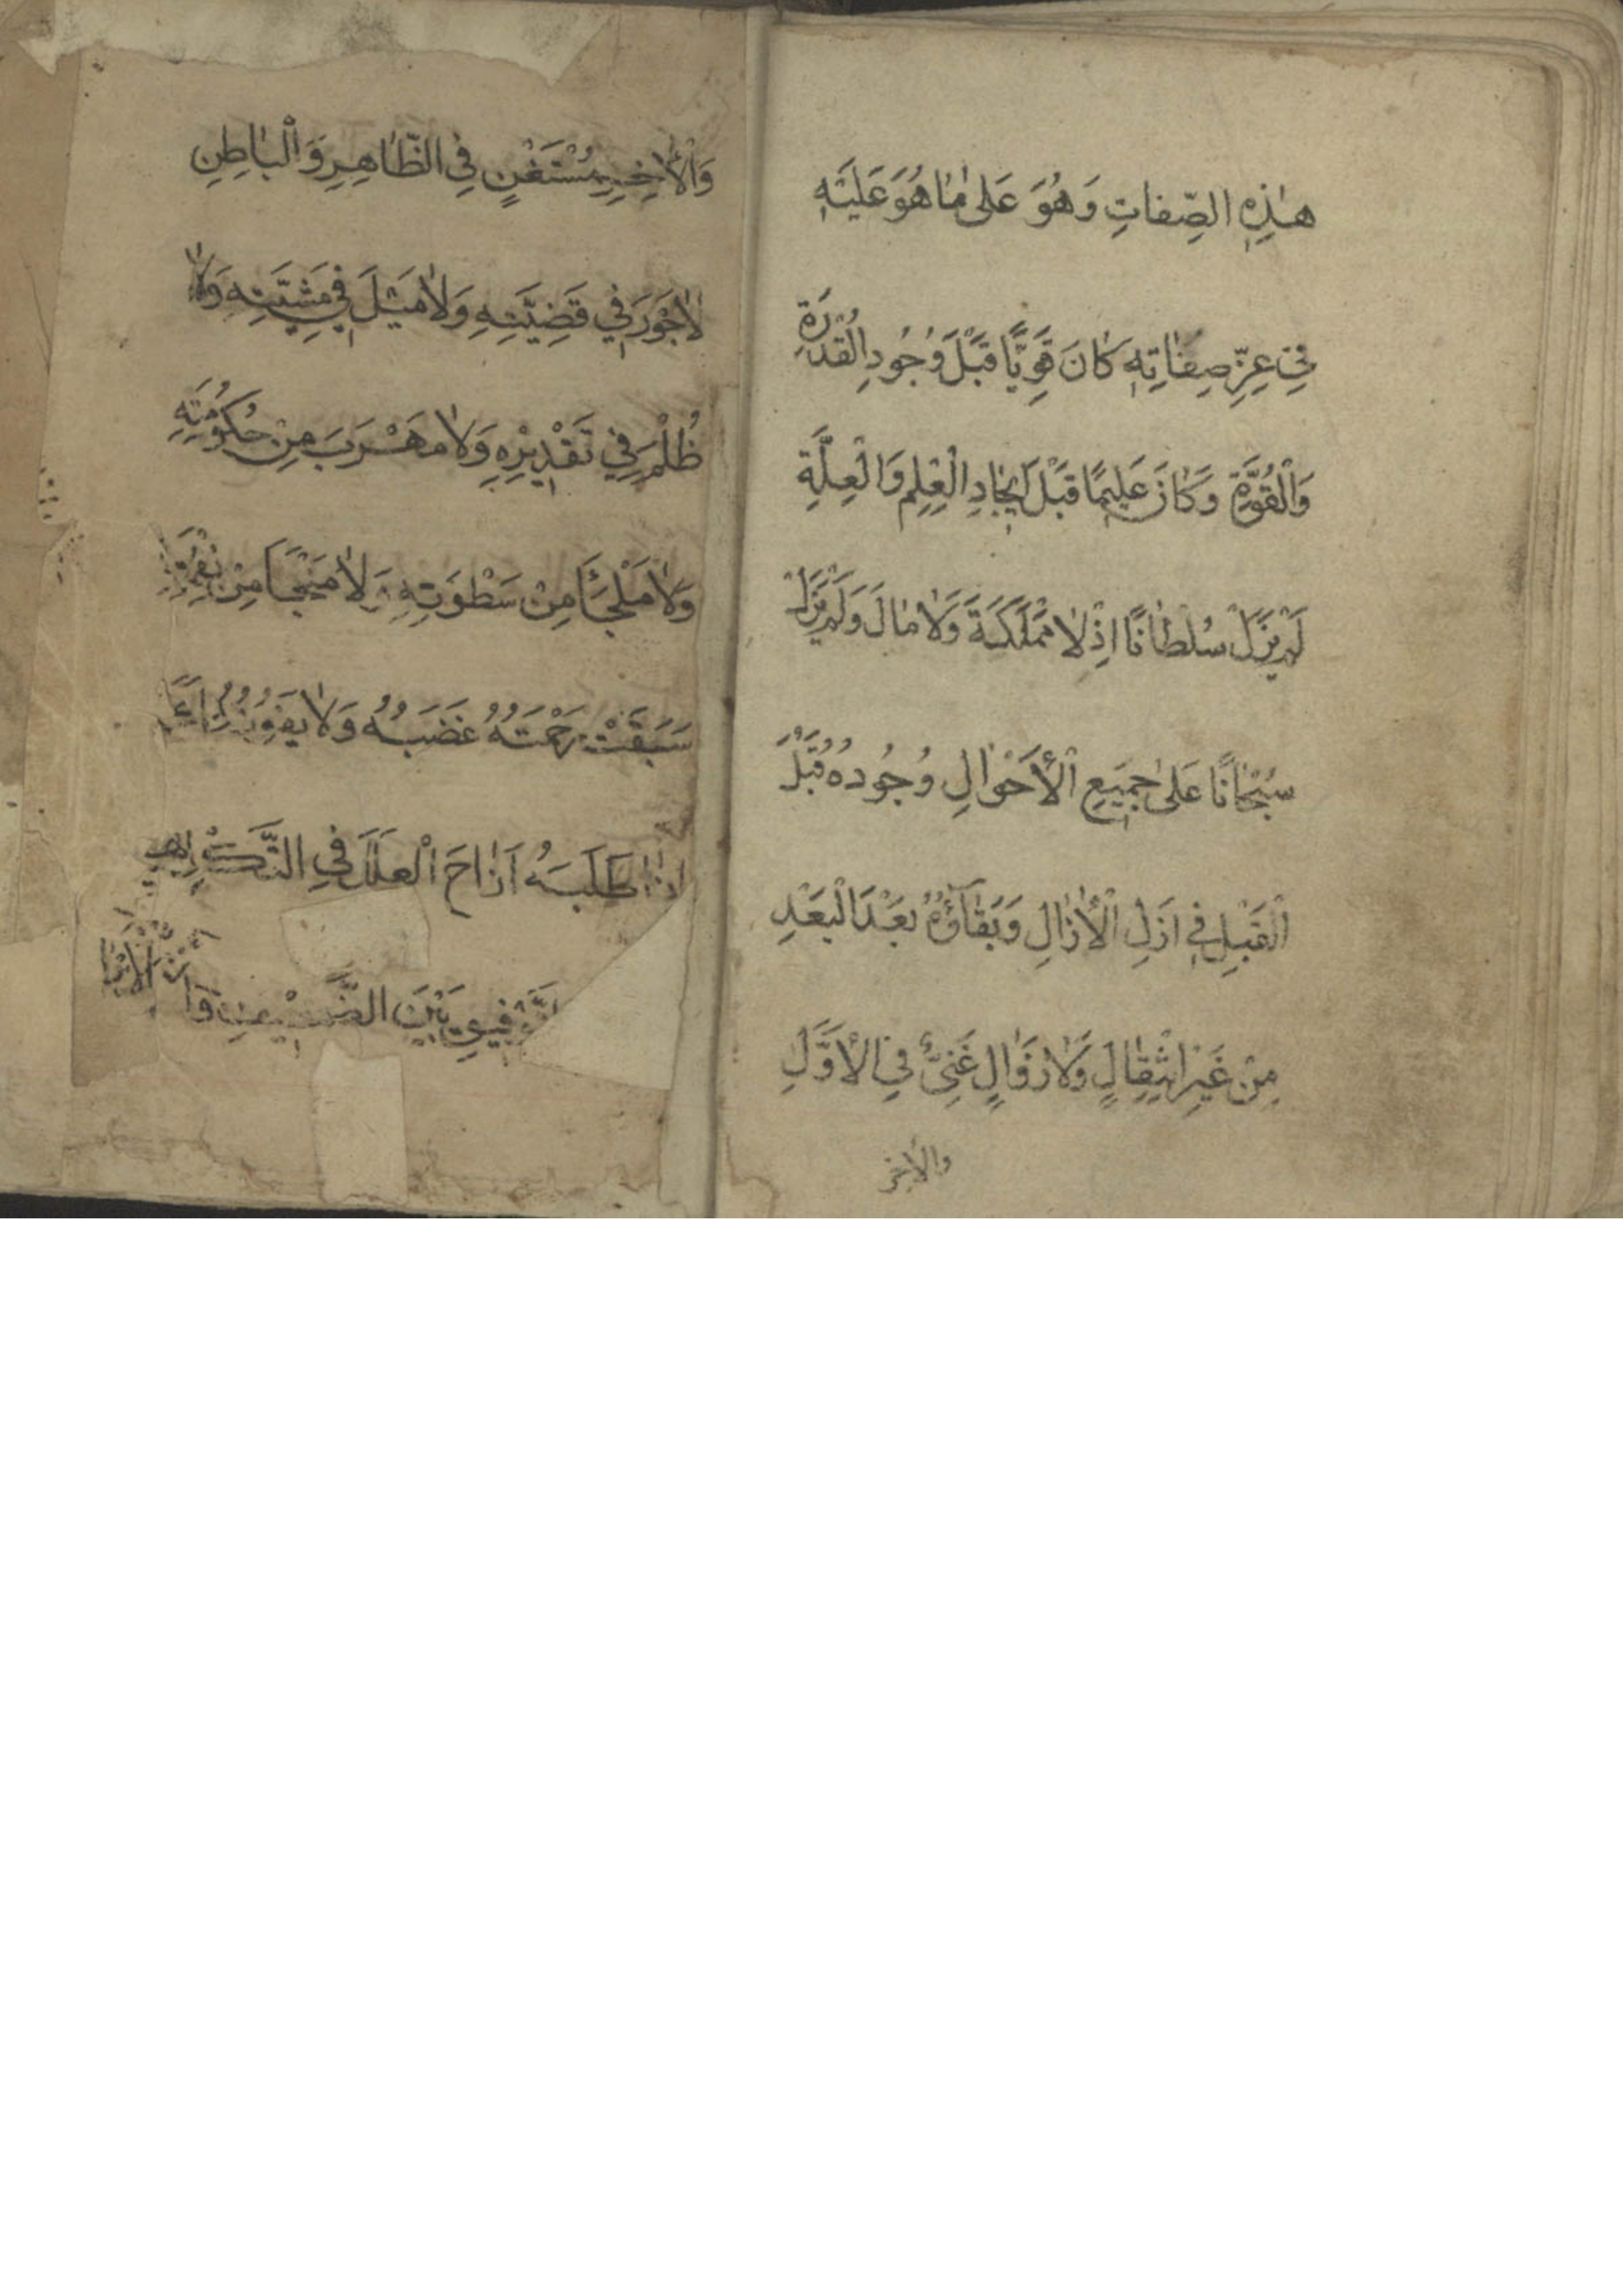 هٰذِهِ الصِّفاتِ وَهُوَ عَلىٰ مٰا هُوَ عَلَيْهِ
فِي عِزِّ صِفٰاتِهِ كٰانَ قَوِيًّا قَبْلَ وُجُودِ الْقُدْرَةِ
وَالْقُوَّةِ وَكٰانَ عَلِيمًا قَبْلَ اِيجٰادِ الْعِلْمِ وَالْعِلَّةِ
لَمْ يَزَلْ سُلْطٰانًا اِذْ لٰا مَمْلَكَةَ وَلٰا مٰالَ وَلَمْ يَزَلْ
سُبْحٰانًا عَلىٰ جَمِيعِ الْأَحْوٰالِ وُجُودُهُ قَبْلَ
الْقَبْلِ فِي اَزَلِ الْأَزٰالِ وَبَقٰآؤُهُ بَعْدَ الْبَعْدِ
مِنْ غَيْرِ انْتِقٰالٍ وَلٰا زَوٰالٍ غَنِيٌّ فِي الْأَوَّلِ
والاخر
وَالْأٰخِرِ مُسْتَغْنٍ فِي الظّٰاهِرِ وَالْبٰاطِنِ
لٰا جَوْرَ فِي قَضِيَّتِهِ وَلٰا مَيْلَ فِي مَشِيَّتِهِ وَلٰا
ظُلْمَ فِي تَقْدِيْرِهِ وَلٰا مَهْرَبَ مِنْ حُكُوْمَتِهِ
وَلٰا مَلْجَأَ مِنْ سَطْوَتِهِ وَلٰا مَنْجَا مِنْ نِقْمَتِهِ
سَبَقَتْ رَحْمَتُهُ غَضَبَهُ وَلٰا يَفُوتُهُ
اِذٰا طَلَبَهُ اَزٰاحَ الْعِلَلَ فِي التَّكْلِيفِ
بَيْنَ